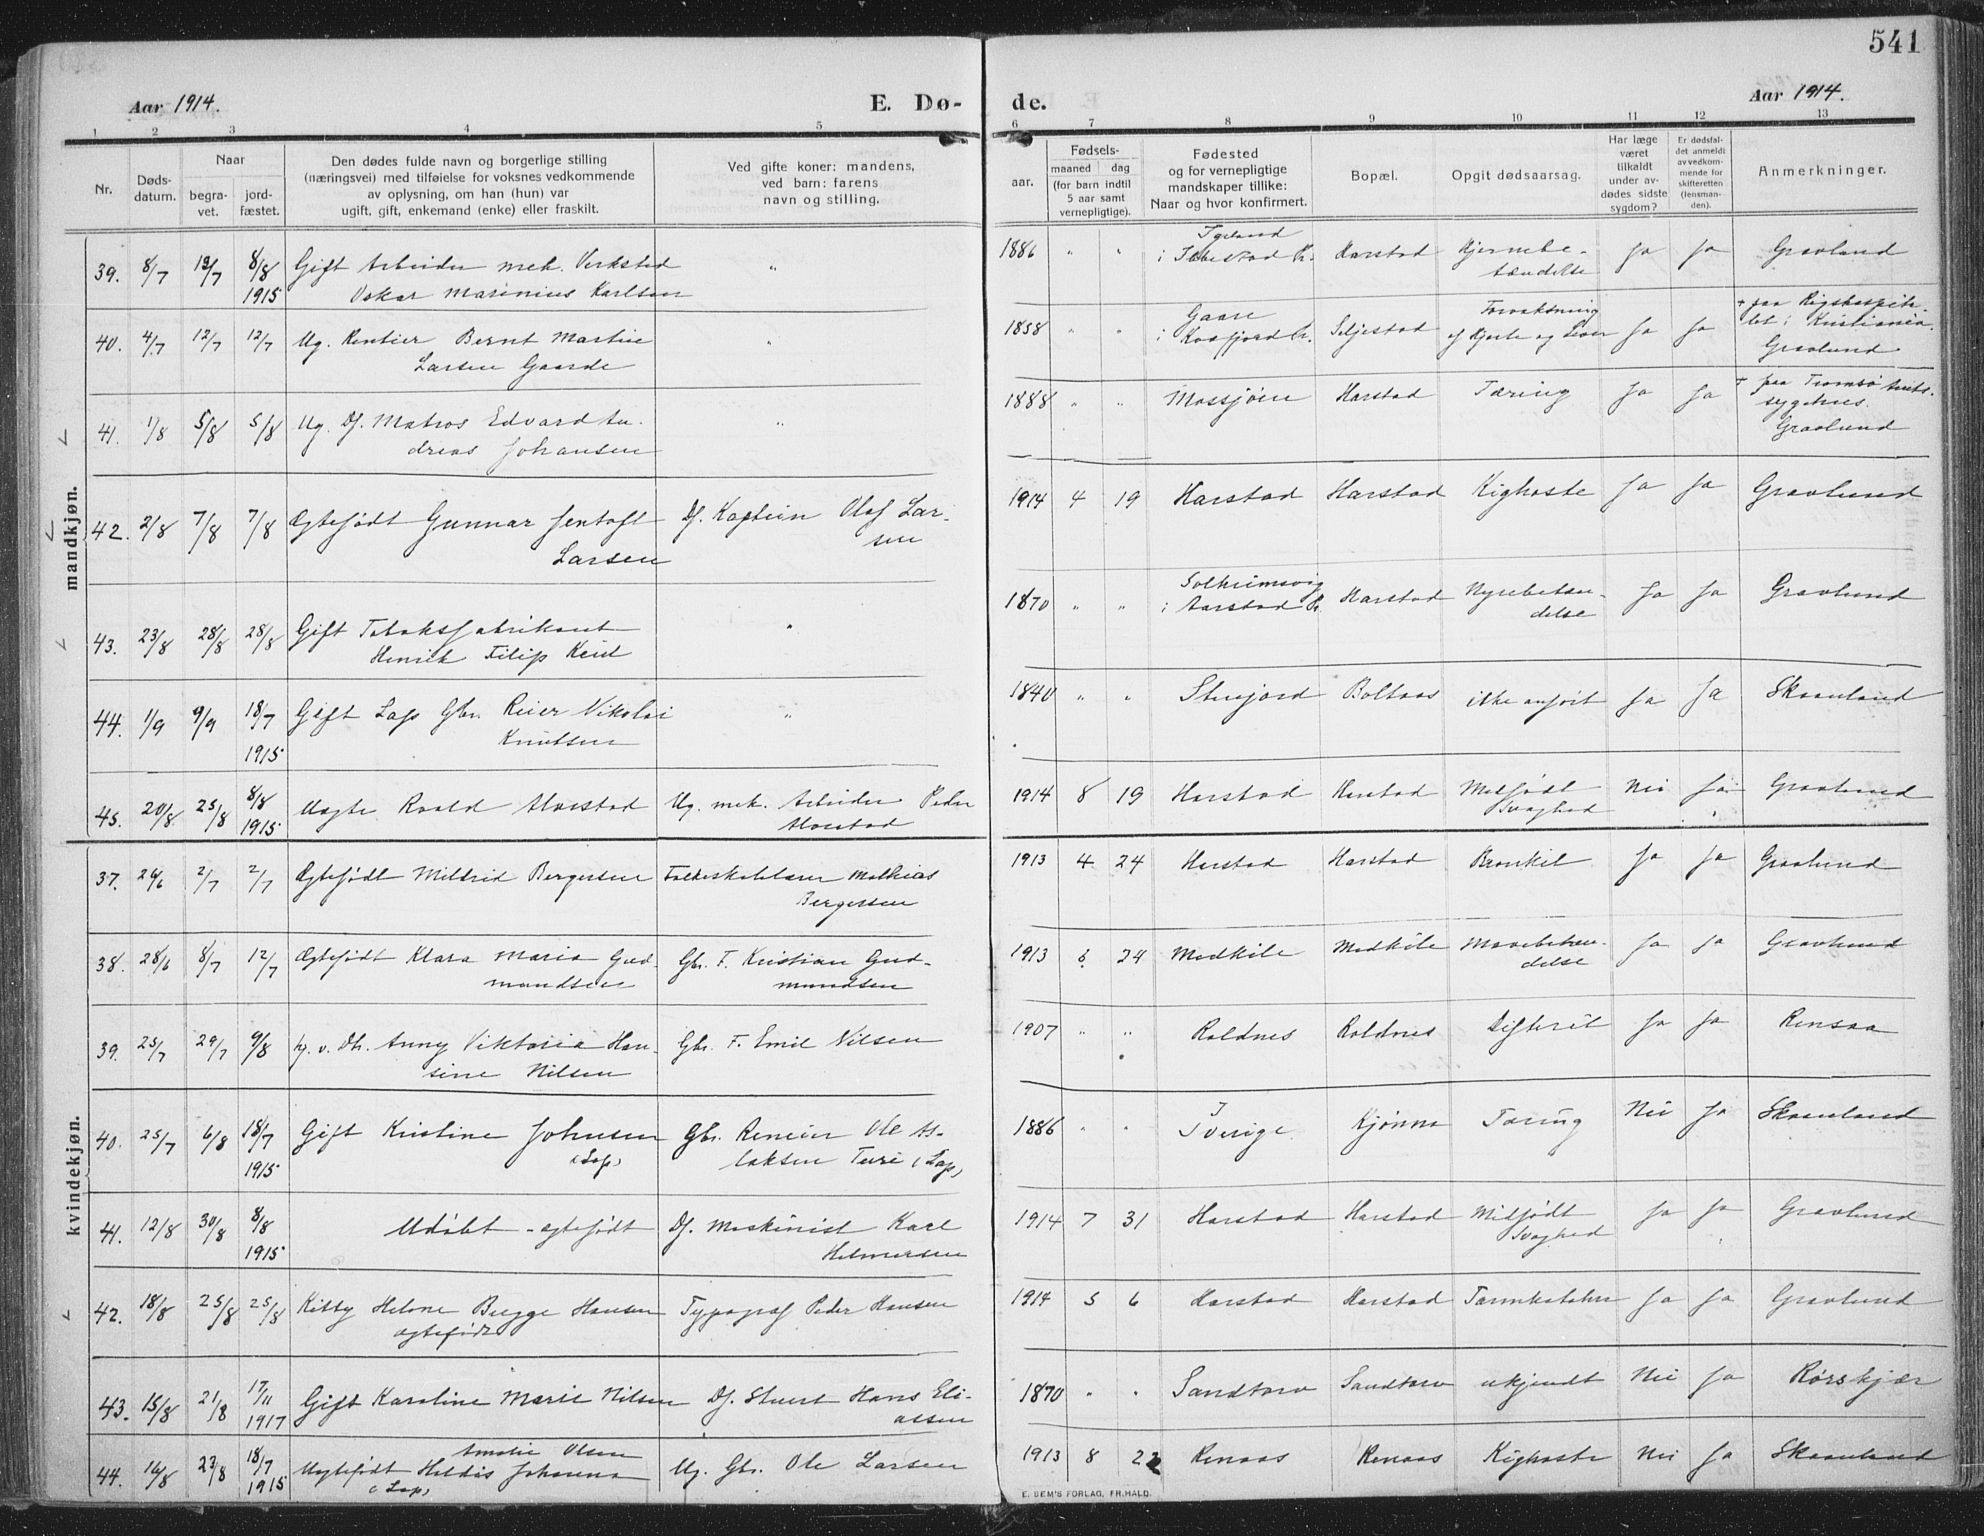 541
Aar 1914.
E. Dø-
de.
Aar 1914.
1 2 3 4 5 6 7 8 9 10 11 12 13
Nr.
Døds-
datum.
Naar
begra-
vet.
jord-
fæstet.
Den dødes fulde navn og borgerlige stilling
(næringsvei) med tilføielse for voksnes vedkommende
av oplysning, om han (hun) var
ugift, gift, enkemand (enke) eller fraskilt.
Ved gifte koner: mandens,
ved barn: farens
navn og stilling.
Fødsels-
aar.
maaned dag
(for barn indtil
5 aar samt
vernepligtige).
Fødested
og for vernepligtige
mandskaper tillike:
Naar og hvor konfirmert.
Bopæl.
Opgit dødsaarsag.
Har læge
været
tilkaldt
under av-
dødes sidste
sygdom?
Er dødsfal-
det anmeldt
av vedkom-
mende for
skifteretten
(lensman-
den).
Anmerkninger.
mandkjøn.
39. 8/7 13/7 8/8 Gift Arbeider mek. Verksted " 1886 " " i Ibbestad Pr. Harstad Hjernebe- Ja Ja Gravlund
1915 Oskar Marinius Karlsen tændelse
40. 4/7 12/7 12/7 Ug. Rentier Bernt Martin " 1858 " " Gaare Seljestad Forvoksning Ja Ja + paa Rigshospita-
Larsen Gaarde i Kvæfjord Pr. af Hjerte og Lever let i Kristiania.
Gravlund
41. 1/8 5/8 5/8 Ug. Df. Matros Edvard An- " 1888 " " Mossjøen Harstad Tæring Ja Ja + paa Tromsø Amts-
dreas Johansen sygehus.
Gravlund
42. 2/8 7/8 7/8 Ægtefødt Gunnar Jentoft Df. Kaptein Olaf Lar- 1914 4 19 Harstad Harstad Kighoste Ja Ja Gravlund
Larsen sen
43. 23/8 28/8 28/8 Gift Tobaksfabrikant " 1870 " " Solheimsvig Harstad Nyrebetæn- Ja Ja Gravlund
Henrik Filip Keul i Aarstad Pr. delse
44. 1/9 9/9 18/7 Gift Lap Gbr. Reier Nikolai " 1840 " " Stenjord Boltaas ikke anført Ja Ja Skaanland
1915 Knutsen
45. 20/8 25/8 8/8 Uægte Roald Morstad Ug. mek. Arbeider Peder 1914 8 19 Harstad Harstad Medfødt Nei Ja Gravlund
1915 Morstad Svaghed
kvindekjøn.
37. 26/6 2/7 2/7 Ægtefødt Mildrid Bergersen Folkeskolelærer Mathias 1913 4 24 Harstad Harstad Bronkit Ja Ja Gravlund
Bergersen
38. 28/6 8/7 12/7 Ægtefødt Klara Maria Gud- Gbr. F. Kristian Gud- 1913 6 24 Medkile Medkile Mavebetæn- Ja Ja Gravlund
mundsen mundsen delse
39. 25/7 29/7 9/8 hj. v. Db. Anny Viktoria Han- Gbr. F. Emil Nilsen 1907 " " Roldnes Roldnes Difterit Ja Ja Rensaa
sine Nilsen
40. 25/7 6/8 18/7 Gift Kristine Johnsen Gbr. Reneier Ole As- 1886 " " Sverige. Kjønna Tæring Nei Ja Skaanland
1915 (Lap) laksen Turi (Lap)
41. 12/8 30/8 8/8 Udøbt - ægtefødt Df. Maskinist Karl 1914 7 31 Harstad Harstad Medfødt Ja Ja Gravlund
1915 Helmersen Svaghed
42. 18/8 25/8 25/8 Kitty Helene Bugge Hansen Typograf Peder Hansen 1914 5 6 Harstad Harstad Tarmkatahr Ja Ja Gravlund
ægtefødt
43. 15/8 21/8 17/11 Gift Karoline Marie Nilsen Df. Stuert Hans Eli- 1870 " " Sandtorv Sandtorv ukjendt Nei Ja Rørskjær
1917 assen
44. 16/8 23/8 18/7 Amalie Olsen
1915 Uægtefødt Heldis Johanna Ug. Gbr. Ole Larsen 1913 8 22 Renaas Renaas Kighoste Nei Ja Skaanland
(Lap)
E. SEM'S FORLAG, FR.HALD.